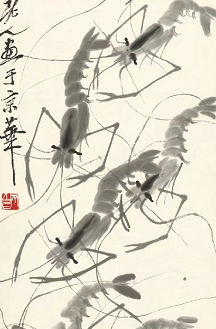 老人画于京华